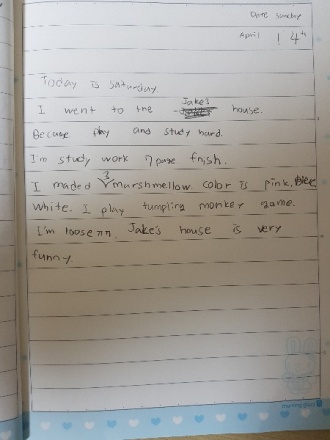 Date Sunday
April 14th
Today is Saturday
I went to the Jake's house.
Because play and study hard.
I'm study work page finish.
I maded 3 marshmellow color is pink, blue
white. I play tumpling monkey game.
I'm loose ㅠㅠ. Jake's house is very
funny.